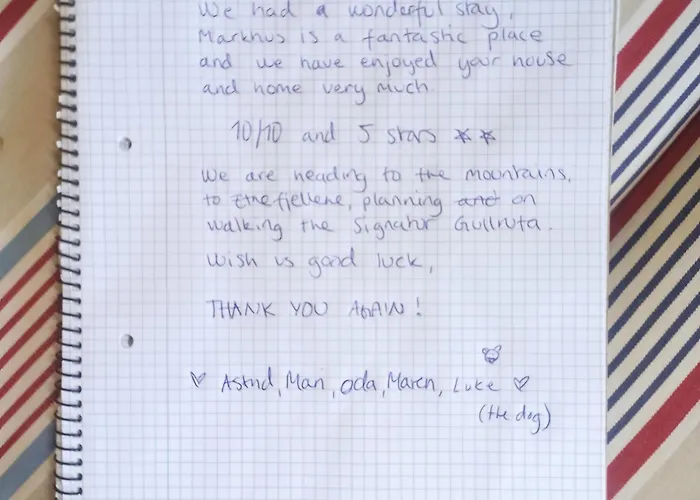 We had a wonderful stay,
Markhus is a fantastic place
and we have enjoyed your house
and home very much.
10/10 and 5 stars
We are heading to the mountains,
to Etnefjellene, planning and on
walking the Signatur Gullruta.
Wish us good luck,
THANK YOU AGAIN!
♡ Astrid, Mari, Oda, Maren, Luke ♡
(the dog)